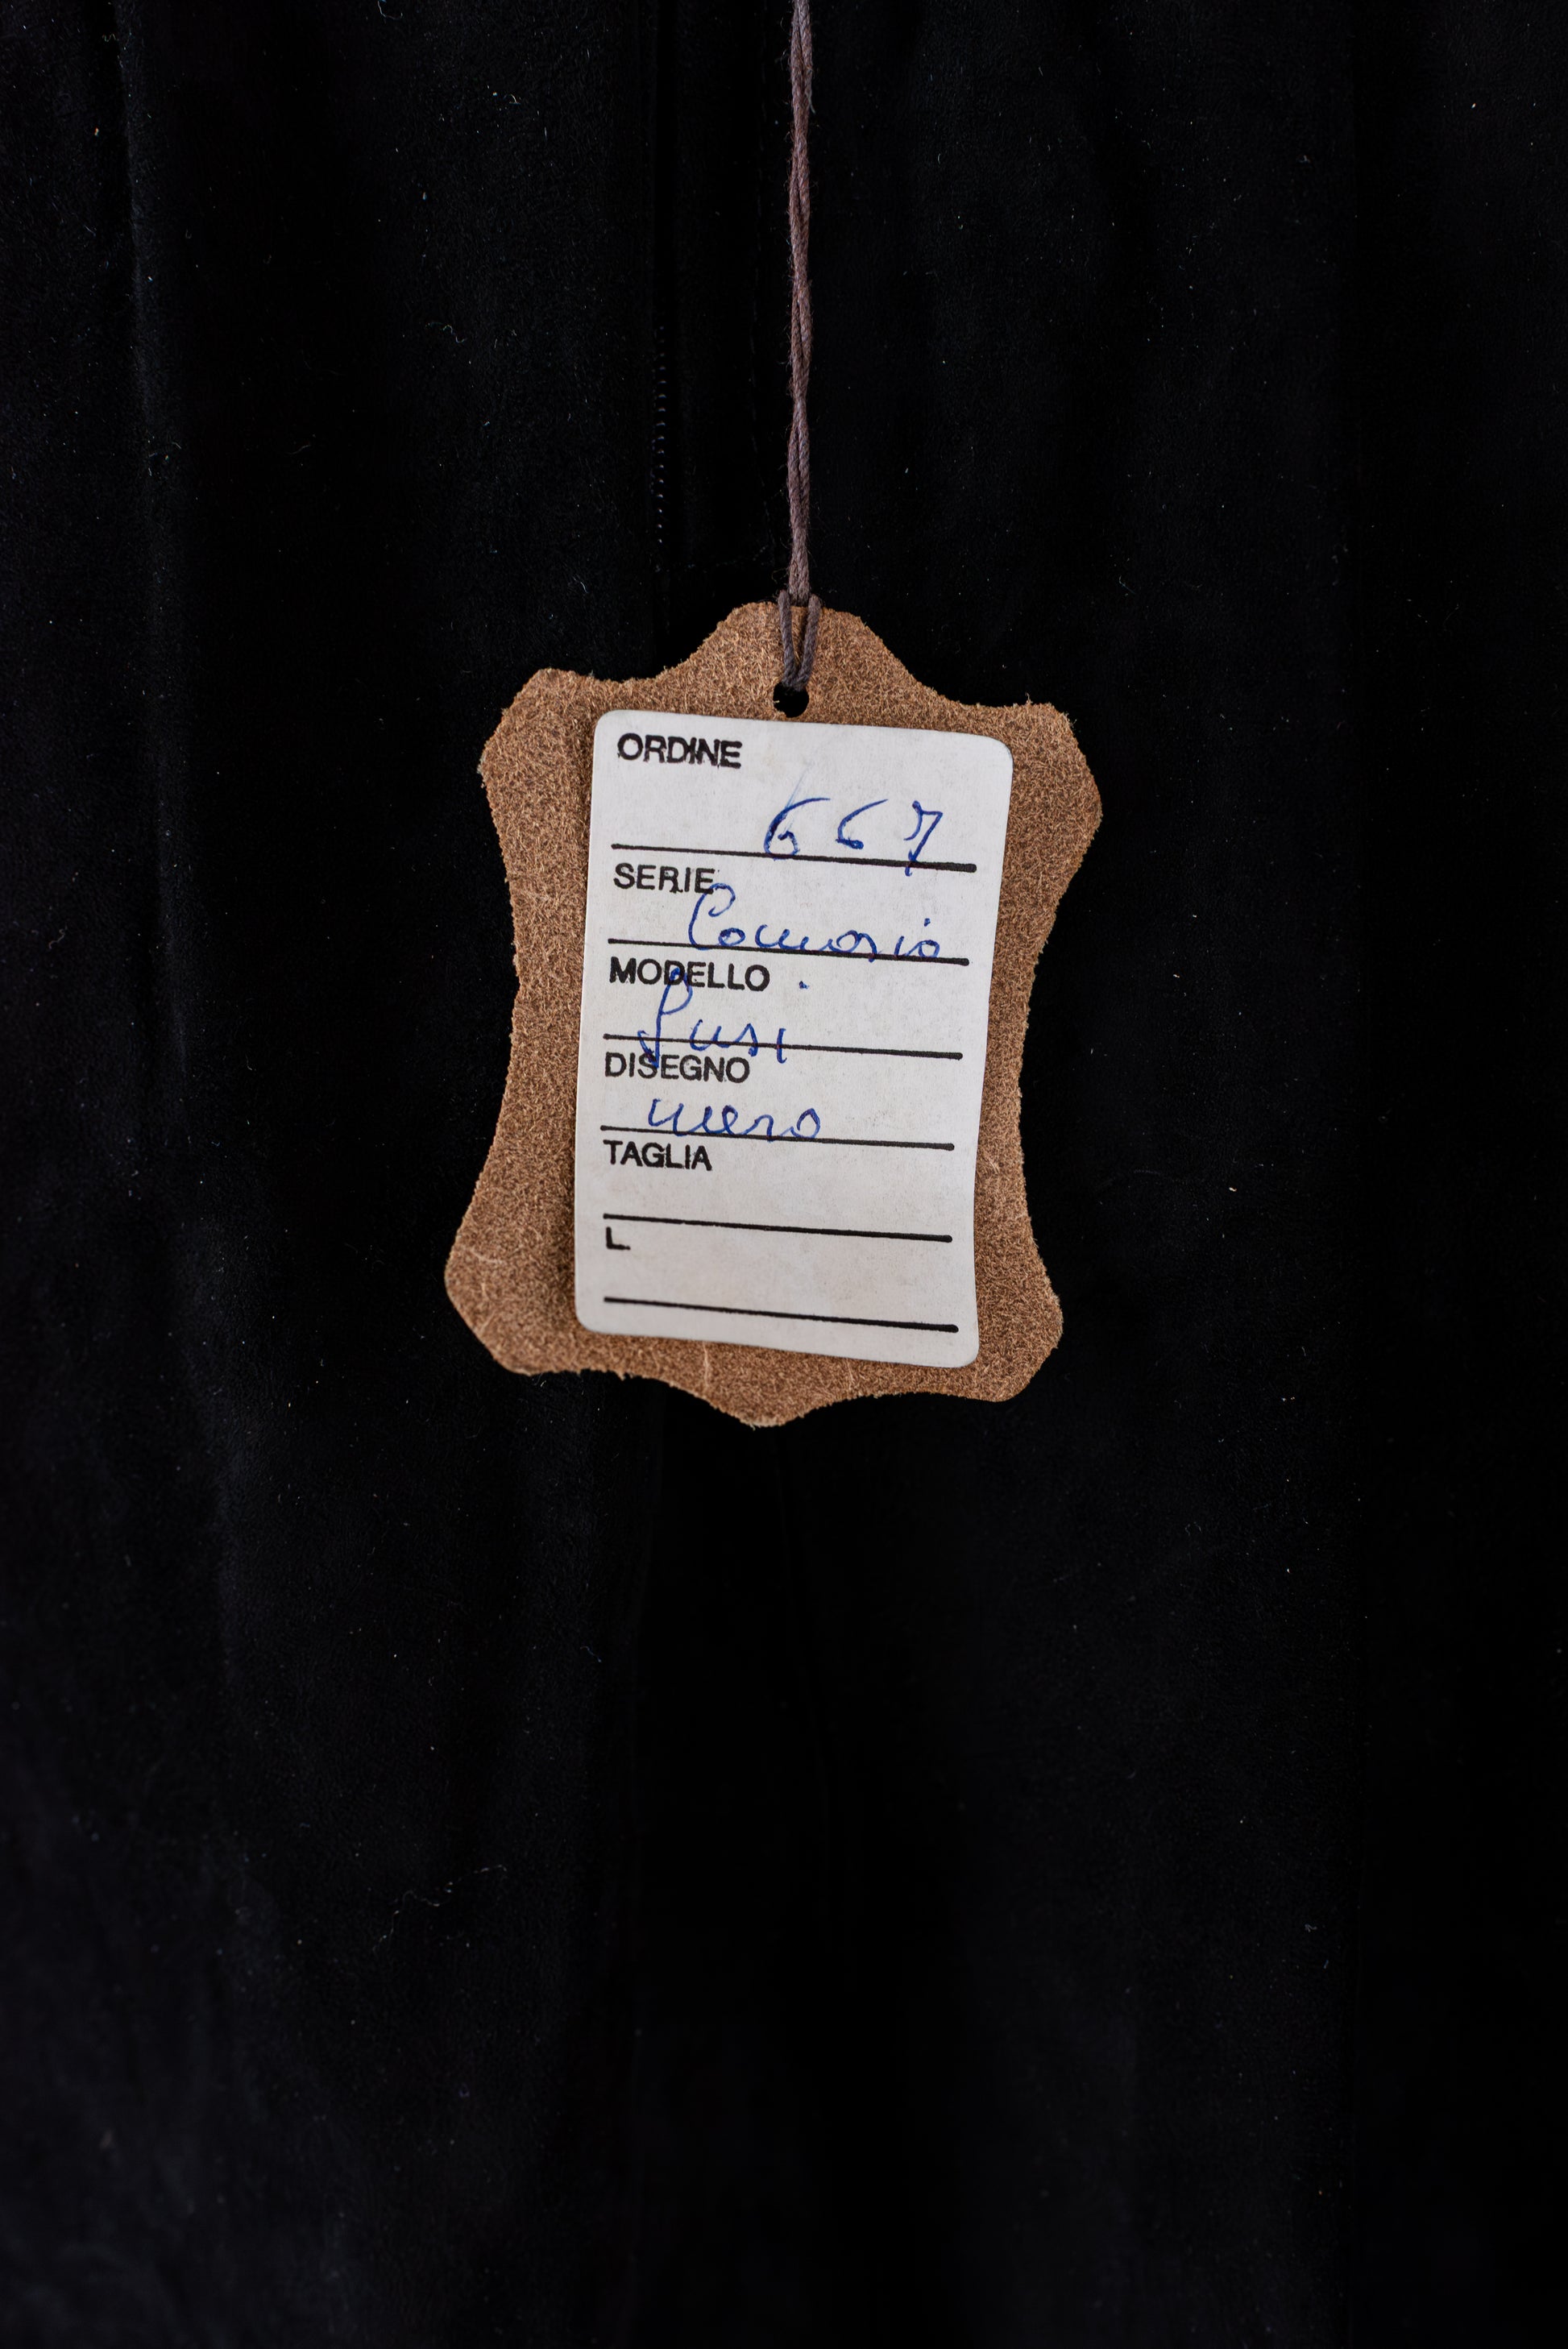 ORDINE
667
SERIE
Camoscio
MODELLO
DISEGNO
nero
TAGLIA
L.